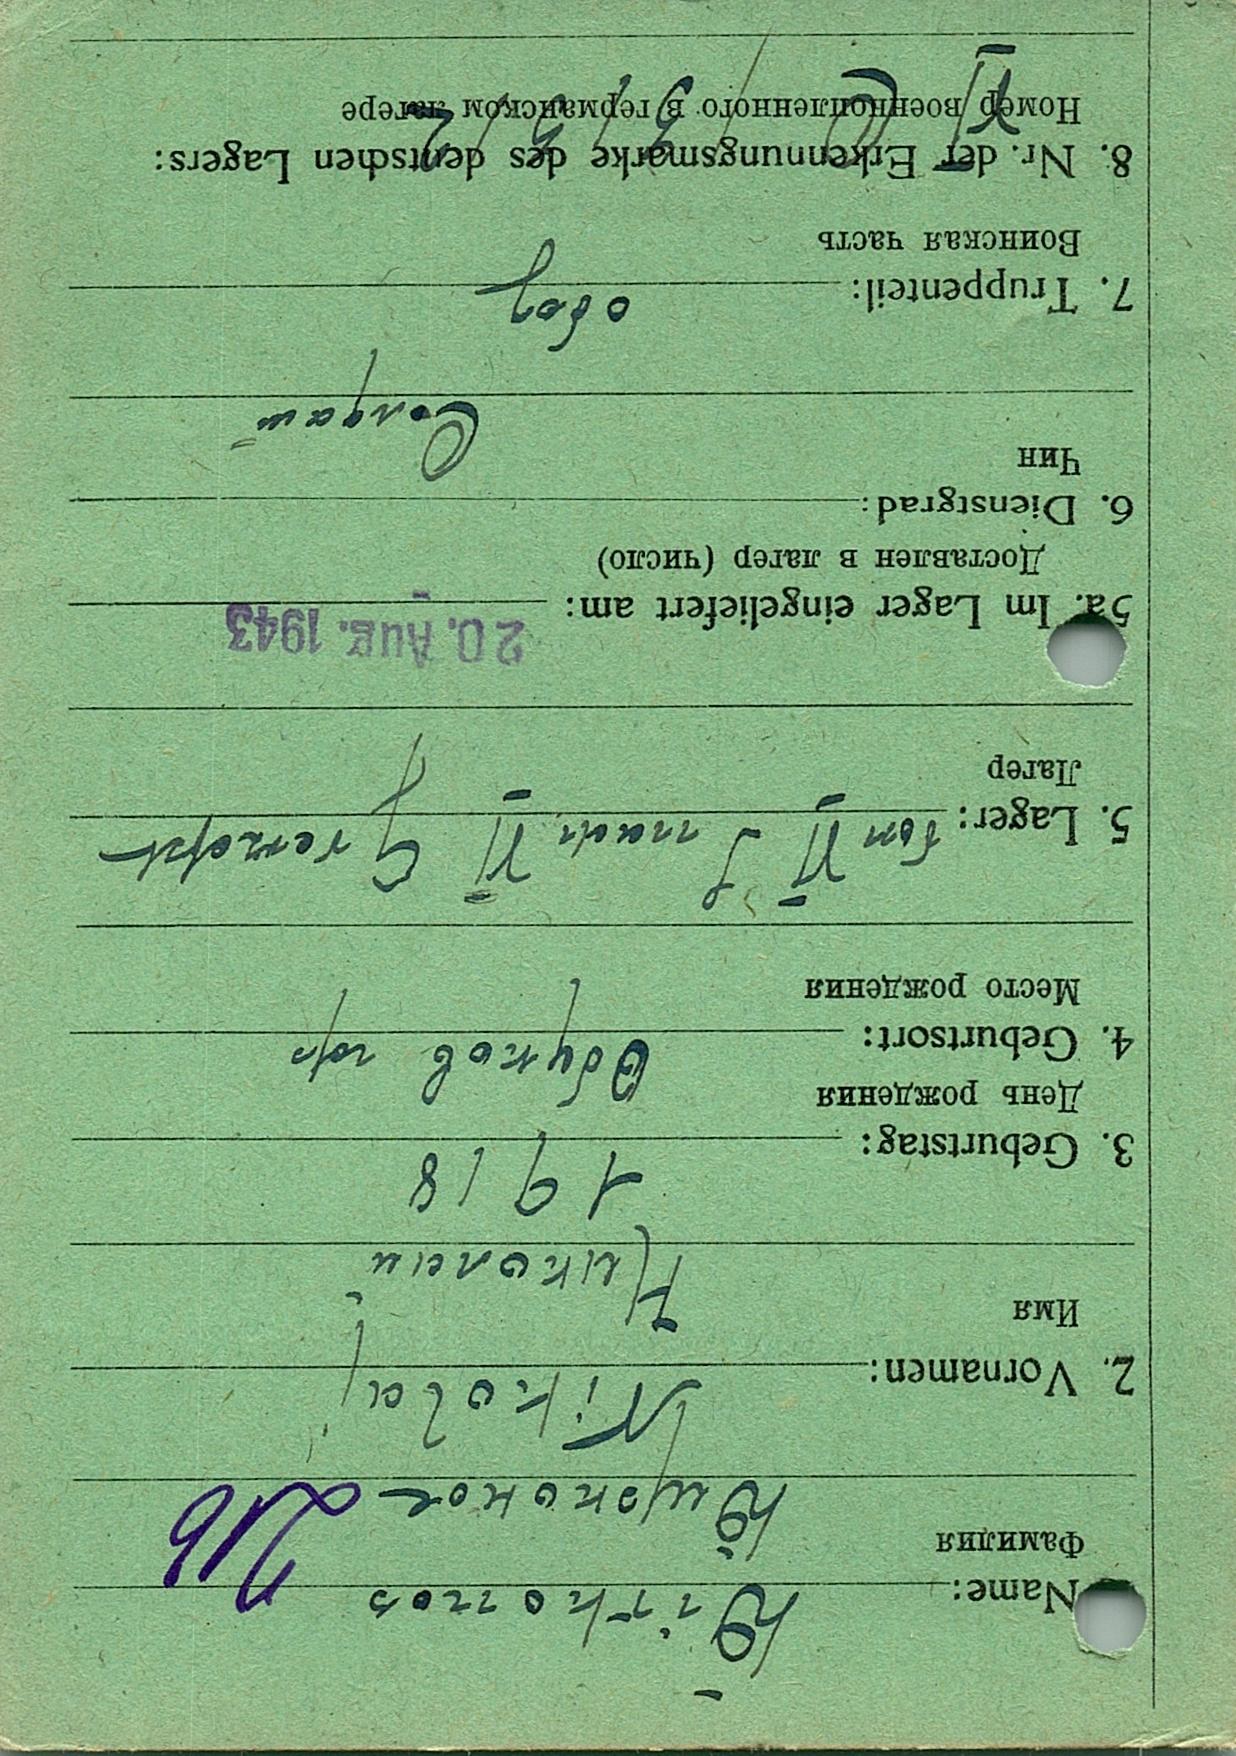 Name:
Фамилия
2. Vornamen: Nikolaj
Имя Николай
3. Geburtstag: 1918
День рождения
4. Geburtsort: Обухов
Место рождения
5. Lager: von VI J nach VI G
Лагер
5a. Im Lager eingeliefert am: 20. Aug. 1943
Доставлен в лагер (число)
6. Dienstgrad:
Чин Солдат
7. Truppenteil: обоз
Воинская часть
8. Nr. der Erkennungsmarke des deutschen Lagers:
Номер военнопленного в германском лагере